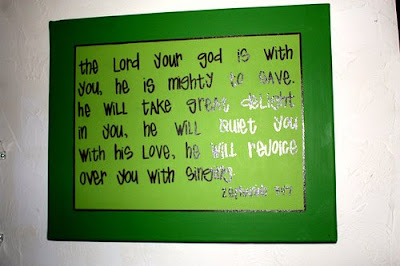 the Lord your god is with
you, he is mighty to save.
he will take great delight
in you, he will quiet you
with his Love, he will rejoice
over you with singing
Zephaniah 3:17